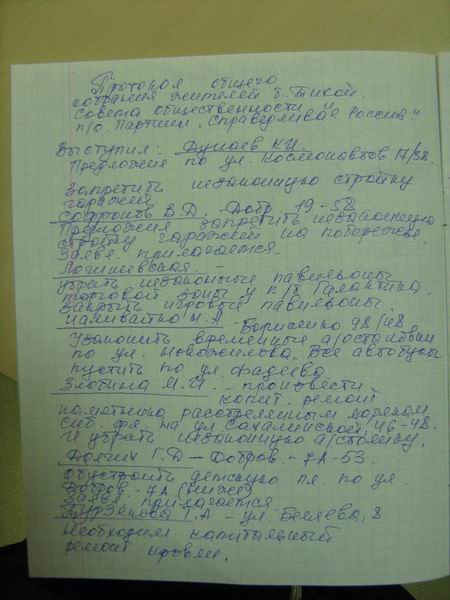 Протокол общего
собрания жителей б. Тихой.
Совета общественности и
п/о. Партии „Справедливая Россия"
Выступил: Дунаев Н.И.
Предложил по ул. Космонавтов 17/38.
Запретить незаконную стройку
гаражей.
Сафронов В.Д. - Добр. 19-52
Предложил запретить незаконную
стройку гаражей на побережье.
Заявл. прилагается.
Логишевская. -
убрать незаконные павильоны
торговой зоны у к/т Галактика.
Закрыть игровые павильоны.
Наливайко Н.А - Борисенко 98/48
Узаконить временные а/остановки
по ул. Новожилова. Все автобусы
пустить по ул. Фадеева
Злобина М.И. - произвести
капит. ремонт
памятника расстрелянным морякам
Сиб. фл. на ул Сахалинской, 46-48.
И убрать незаконную а/стоянку.
Г.Д - Добров. - 7А-53.
Обустроить детскую пл. по ул.
Добров. - 7А (ниже)
Заявл. прилагается.
Т.А - ул. Беляева, 8
Необходим капитальный
ремонт кровли.